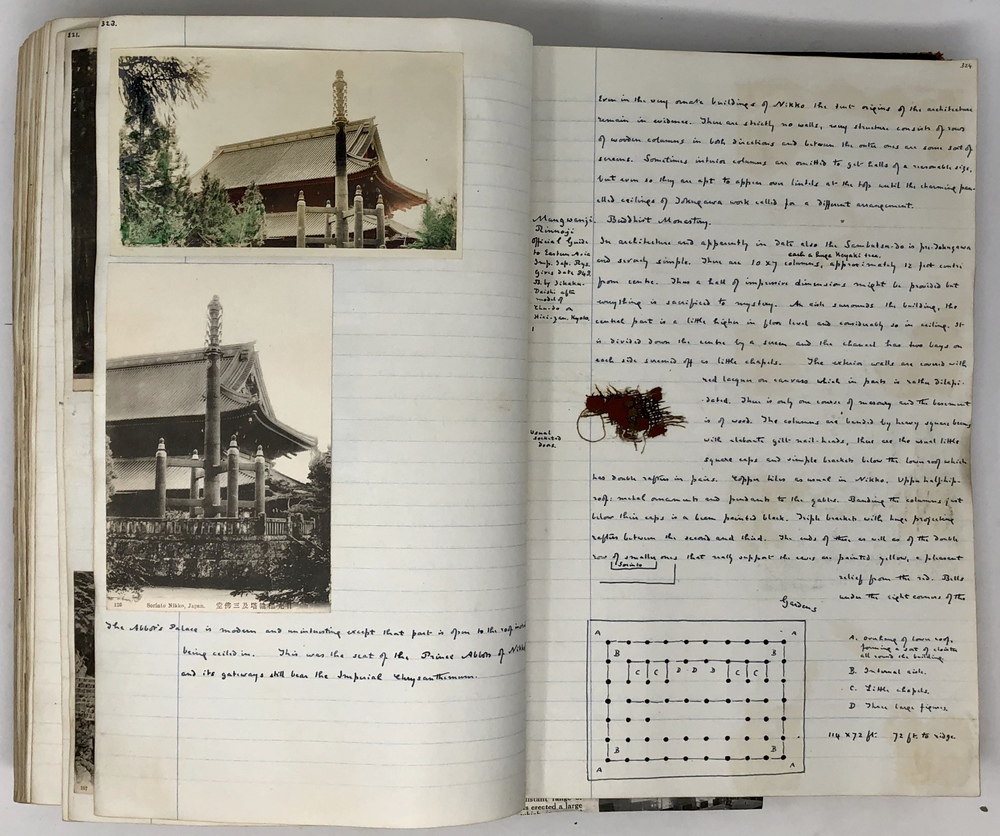 321.
323.
126 Sorinto Nikko, Japan.
The Abbot's Palace is modern and uninteresting except that part is open to the roof
being ceiled in. This was the seat of the Prince Abbots of Nikko
and its gateways still bear the Imperial Chrysanthemum.
117
324
Even in the very ornate buildings of Nikko the tent origins of the architecture
remain in evidence. There are strictly no walls, every structure consists of rows
of wooden columns in both directions and between the outer ones are some sort of
screens. Sometimes interior columns are omitted to get halls of a reasonable size,
but even so they are apt to appear over lintels at the top until the charming pan-
elled ceilings of Tokugawa work called for a different arrangement.
Mangwanji
Rinnoji
Official Guide
to Eastern Asia
Imp. Jap. Rys.
Gives date 848
by Jikaku
Daishi after
model of
Chu-do on
Hiei-zan, Kyoto
Buddhist Monastery.
In architecture and apparently in date also the Sambutsu-do is pre-Tokugawa
each a huge Keyaki tree.
and severely simple. There are 10 x 7 columns, approximately 12 feet centre
from centre. Thus a hall of impressive dimensions might be provided but
everything is sacrificed to mystery. An aisle surrounds the building, the
central part is a little higher in floor level and considerably so in ceiling. It
is divided down the centre by a screen and the chancel has two bays on
each side screened off as little chapels. The exterior walls are covered with
red lacquer on canvas which in parts is rather dilapi-
dated. There is only one course of masonry and the basement
is of wood. The columns are banded by heavy square beams
with elaborate gilt nail-heads, there are the usual little
square caps and simple brackets below the lower roof which
Usual
socketed
doors.
has double rafters in pairs. Copper tiles as usual in Nikko. Upper half-hip-
roof: metal ornaments and pendants to the gables. Banding the columns just
below their caps is a beam painted black. Triple brackets with huge projecting
rafters between the second and third. The ends of these, as well as of the double
row of smaller ones that really support the eaves are painted yellow, a pleasant
Sorinto
relief from the red. Bells
under the eight corners of the
Gardens
A A
B B
C C D D D C C
B B
A A
A. overhang of lower roof,
forming a sort of cloister
all round the building.
B. Internal aisle.
C. Little chapels.
D. Three large figures.
114 x 72 ft. 72 ft. to ridge
distant range
erected a large